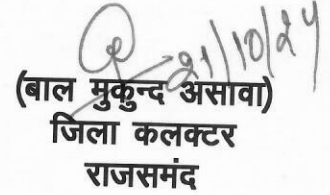 21/10/24
(बाल मुकुन्द असावा)
जिला कलक्टर
राजसमंद